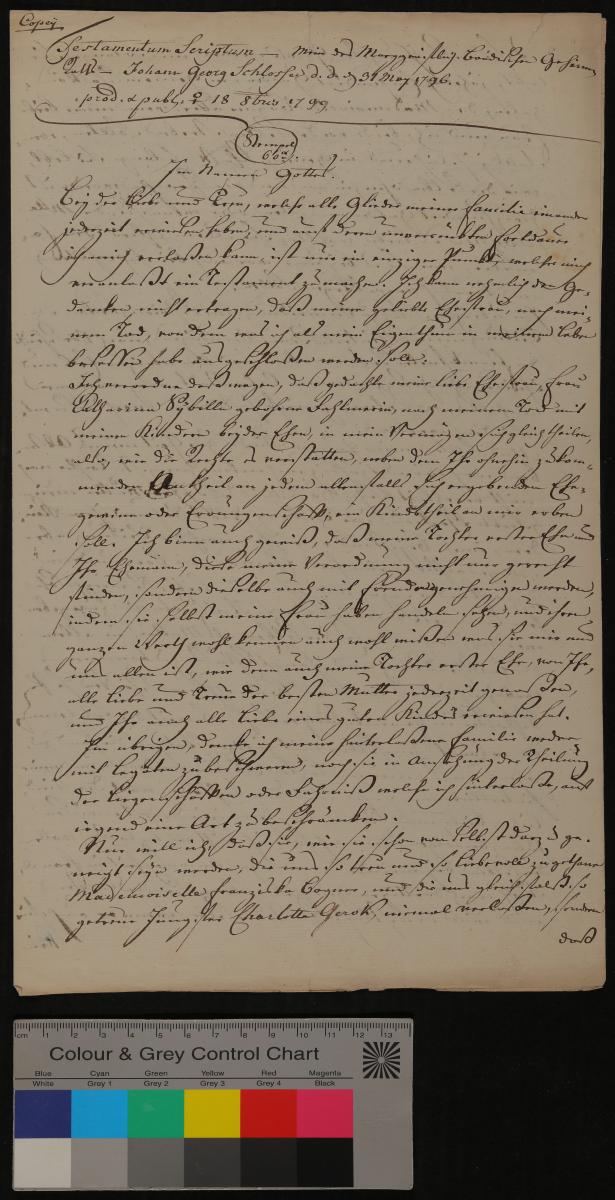 Copey
Testamentum Scriptum – mein des Marggräflich Badischen Geheimen
Raths – Johann Georg Schlosser d. d. 31 May 1796.
prod. & publ. ♀ 18 8bris 1799
Stempel
Im Namen Gottes.
Bey der Liebe und Treu, welche alle Glieder meiner Familie einander
jederzeit erwiesen haben, und auf deren unverrückten Fortdauer
ich mich verlassen kann, ist nur ein einziger Punkt, welcher mich
veranlaßt ein Testament zu machen. Ich kann nehmlich den Ge-
danken nicht ertragen, daß meine geliebte Ehefrau, nach mei-
nem Tod, von dem was ich als mein Eigenthum in meinem Leben
besessen habe ausgeschlossen werden soll.
Ich verordne deßwegen, daß gedachte meine liebe Ehefrau, Frau
Catharina Sybilla gebohrne Fahlmerin, nach meinem Tode mit
meinen Kindern beyder Ehen, in mein Vermögen sich gleich theilen,
also, wie die Rechte es verstatten, neben dem Ihr ohnehin zukom-
menden Antheil an jedem allenfalls sich ergebenden Ehe-
gewinn oder Errungenschafft, ein Kindstheil an mir erben
soll. Ich binn auch gewiß, daß meine Tochter erster Ehe und
Ihr Ehemann, diese meine Verordnung nicht nur gerecht
finden, sondern dieselbe auch mit Freuden genehmigen werden,
indem sie selbst meine Frau haben handeln sehen, und ihren
ganzen Werth wohl kennen auch wohl wissen was sie mir und
uns allen ist, wie denn auch meine Tochter erster Ehe, von Ihr,
alle Liebe und Treue der besten Mutter jederzeit genossen,
und Ihr auch alle Liebe eines guten Kindes erwiesen hat.
Im übrigen, denke ich meine hinterlassene Familie weder
mit Legaten zu beschweren, noch sie in Ansehung der Theilung
der Liegenschafften oder Fahrniß welche ich hinterlasse, auf
irgend eine Art zu beschränken.
Nur will ich, daß sie, wie sie schon von selbst dazu ge-
neigt seyn werden, die uns so treu und so liebevoll zugethane
Mademoiselle Franziska Bogner, und die uns gleichfalls so
getreue Jungfer Charlotte Gerok, niemal verlassen, sondern
daß